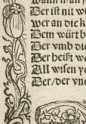 Der ist nit we
wer an die k
Dem würt b
Der vmb die
Der heißt we
All wisen ye
Der/der vne